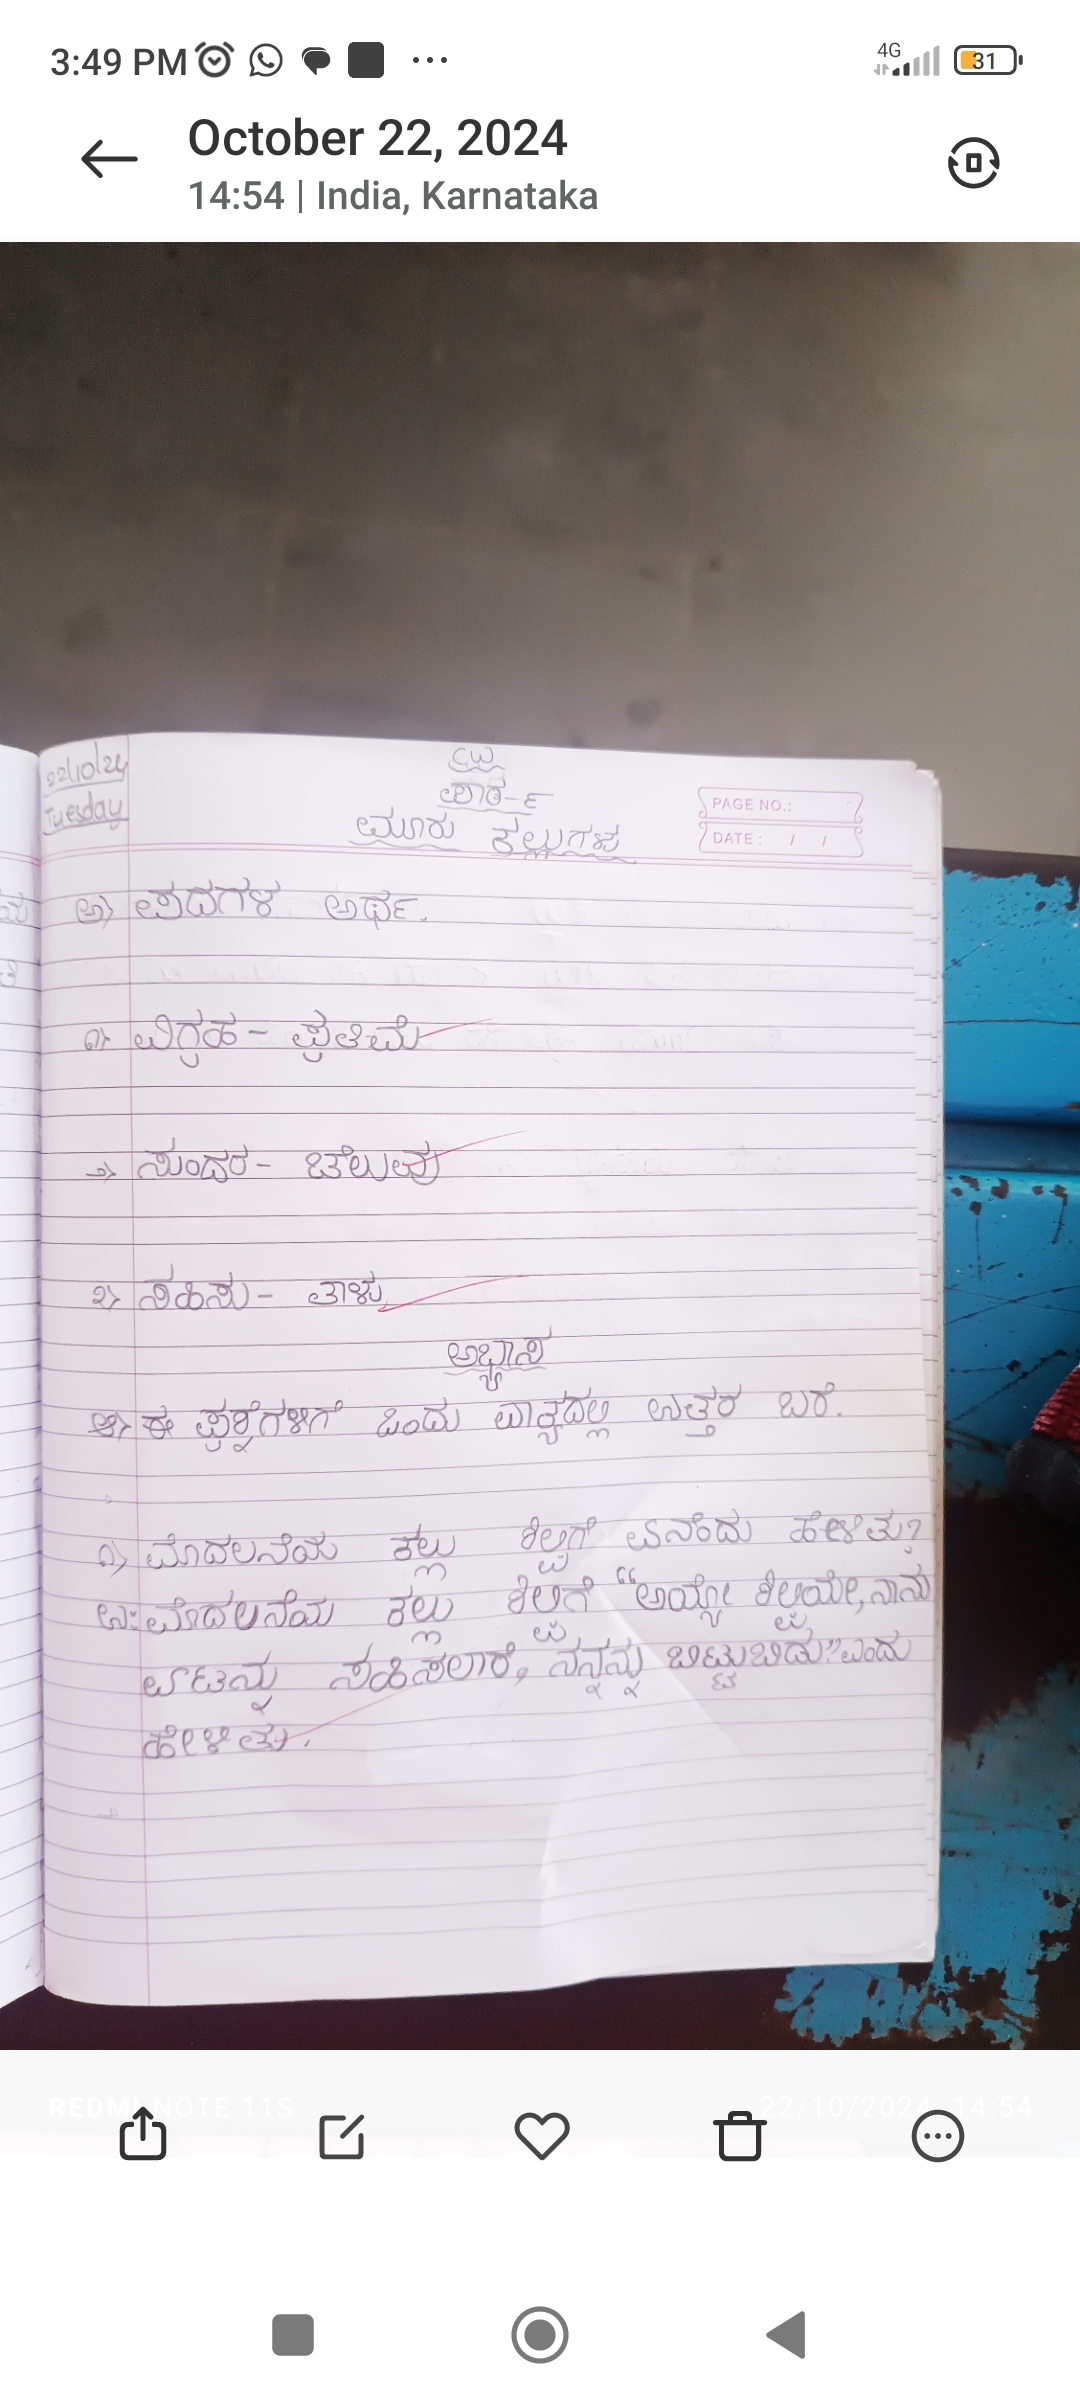 3:49 PM
4G
31
October 22, 2024
14:54 | India, Karnataka
22/10/24
Tuesday
ಪಾಠ-೬
ಮೂರು ಕಲ್ಲುಗಳು
PAGE NO.:
DATE: / /
ಅ) ಪದಗಳ ಅರ್ಥ.
೧) ವಿಗ್ರಹ - ಪ್ರತಿಮೆ
ಸುಂದರ - ಚೆಲುವು
೩) ಸಹಿಸು - ತಾಳು
ಅಭ್ಯಾಸ
ಆ) ಈ ಪ್ರಶ್ನೆಗಳಿಗೆ ಒಂದು ವಾಕ್ಯದಲ್ಲಿ ಉತ್ತರ ಬರೆ.
೧) ಮೊದಲನೆಯ ಕಲ್ಲು ಶಿಲ್ಪಿಗೆ ಏನೆಂದು ಹೇಳಿತು?
ಉ: ಮೊದಲನೆಯ ಕಲ್ಲು ಶಿಲ್ಪಿಗೆ "ಅಯ್ಯೋ ಶಿಲ್ಪಿಯೇ, ನಾನು
ಏಟನ್ನು ಸಹಿಸಲಾರೆ, ನನ್ನನ್ನು ಬಿಟ್ಟುಬಿಡು" ಎಂದು
ಹೇಳಿತು.
REDMI NOTE 11S
22/10/2024 14:54